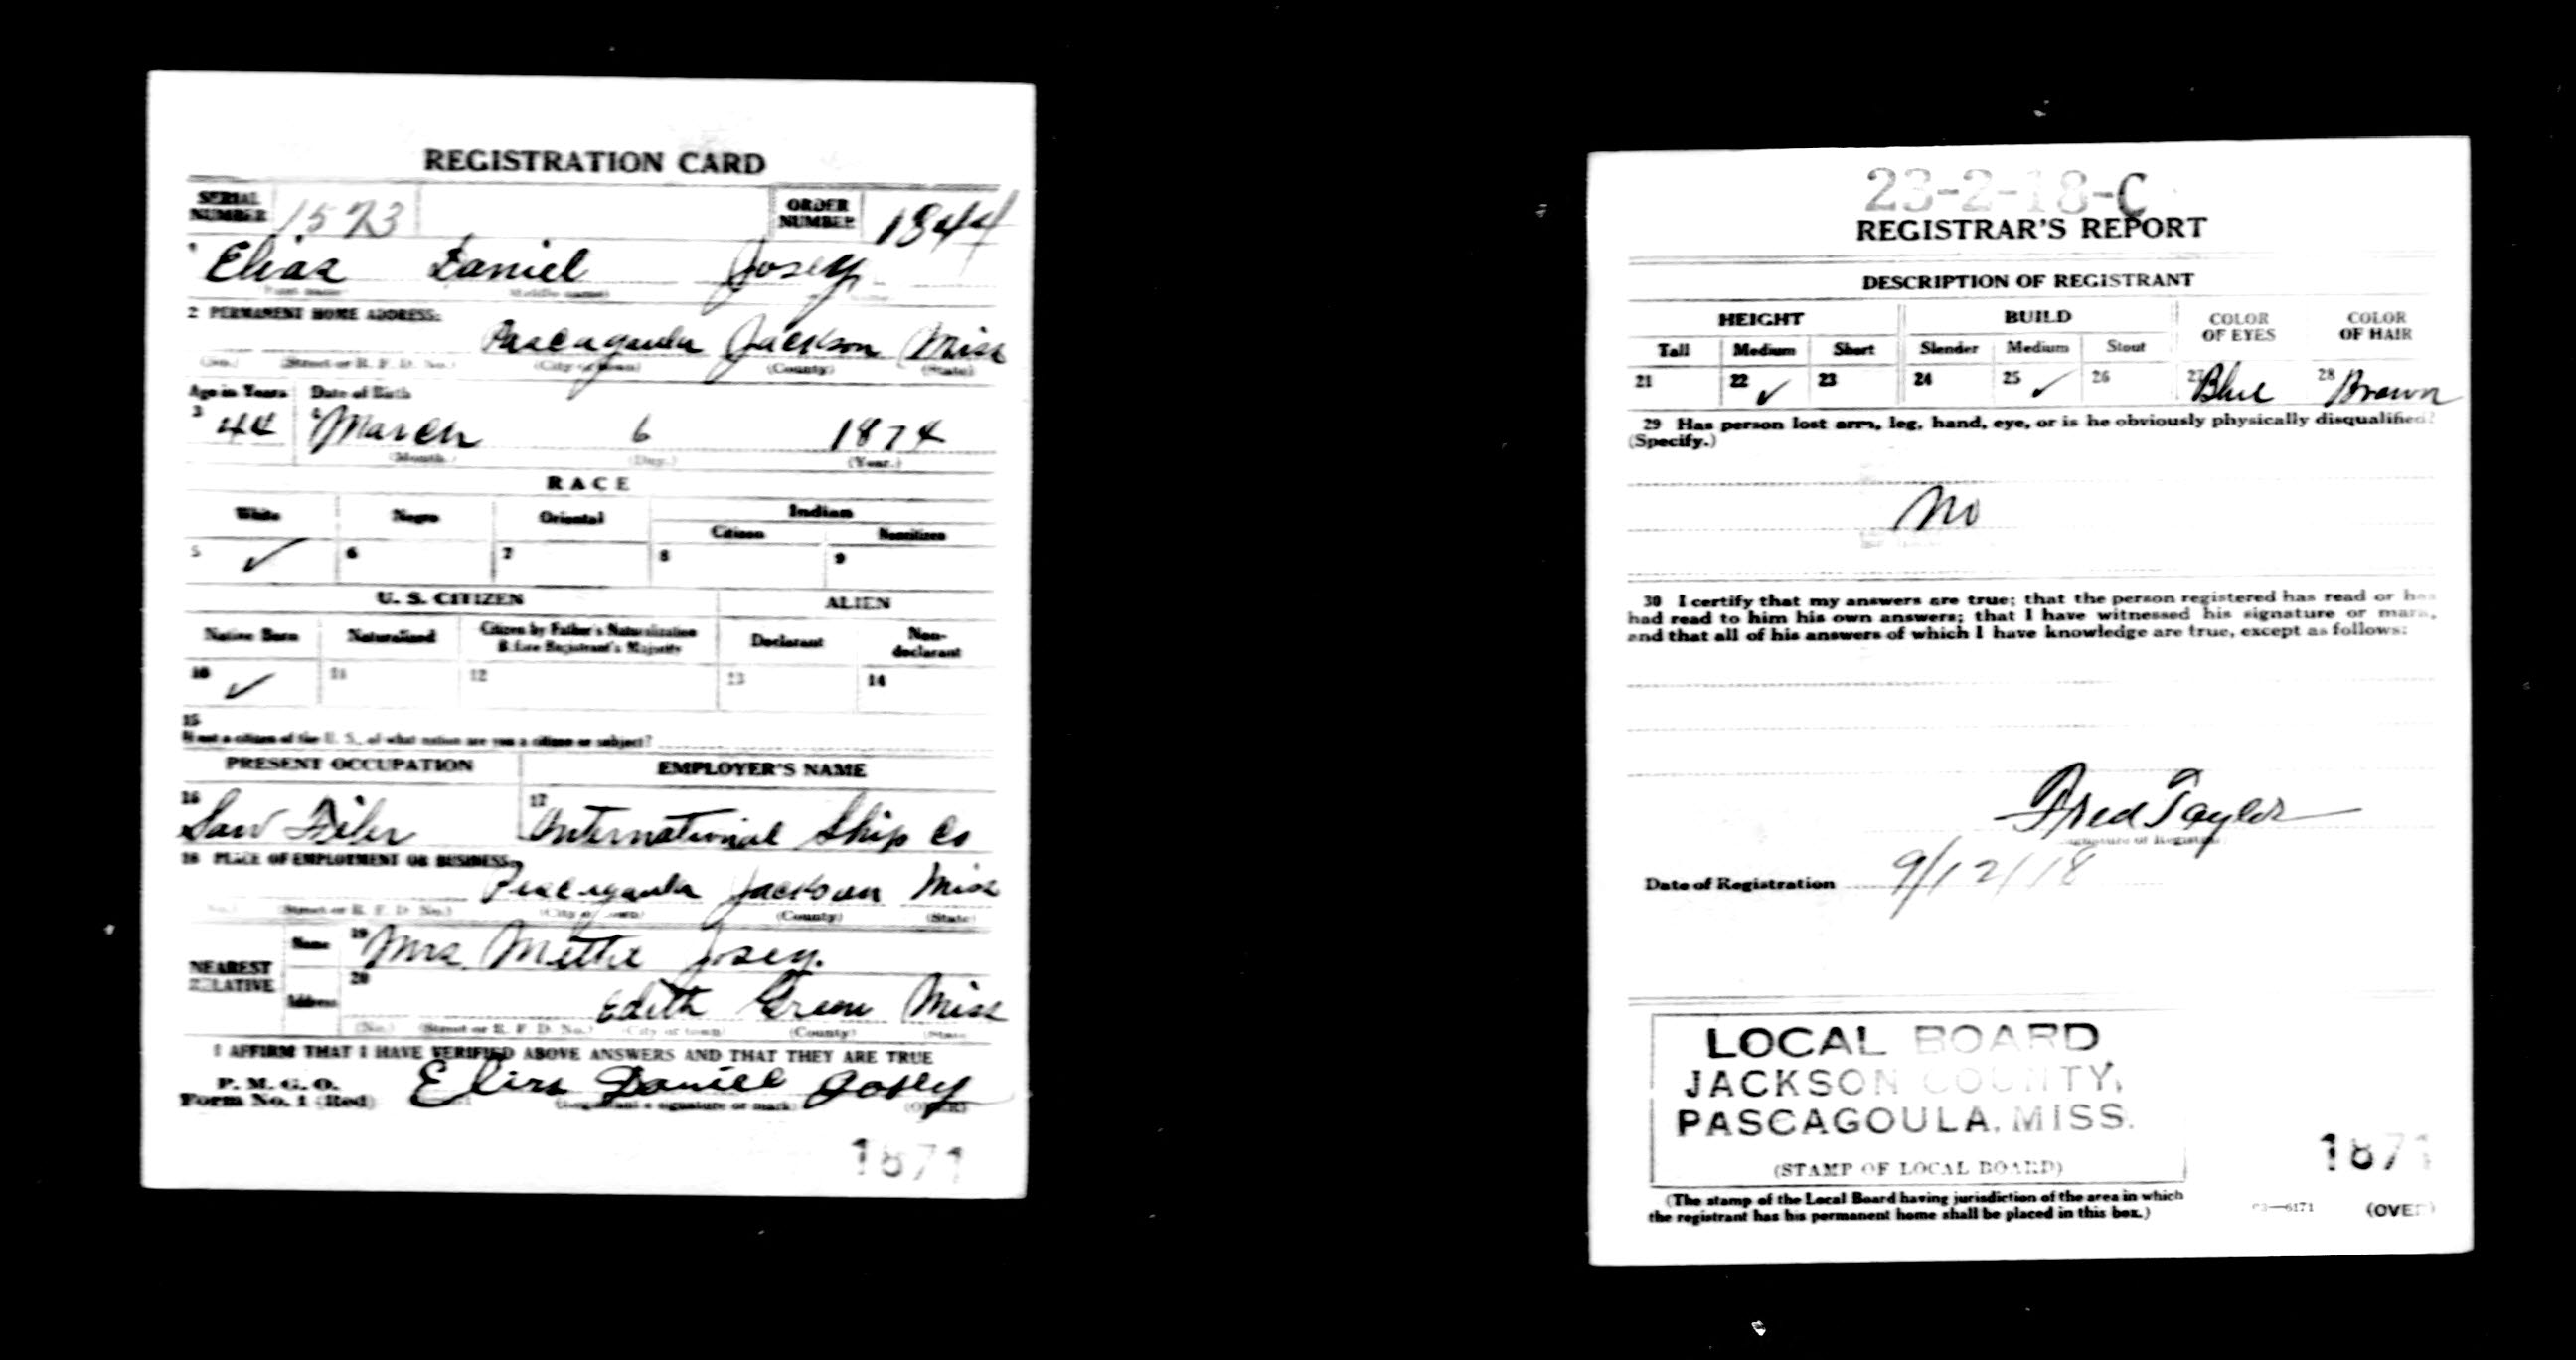 REGISTRATION CARD
SERIAL NUMBER 1573
ORDER NUMBER 1844
1 Elias Daniel Josey
(First name) (Middle name) (Last name)
2 PERMANENT HOME ADDRESS:
Pascagoula Jackson Miss
(No.) (Street or R. F. D. No.) (City or town) (County) (State)
Age in Years Date of Birth
3 44 4 March 6 1874
(Month.) (Day.) (Year.)
RACE
White Negro Oriental Indian
Citizen Noncitizen
5 ✓ 6 7 8 9
U. S. CITIZEN ALIEN
Native Born Naturalized Citizen by Father's Naturalization Before Registrant's Majority Declarant Non-declarant
10 ✓ 11 12 13 14
15
If not a citizen of the U. S., of what nation are you a citizen or subject?
PRESENT OCCUPATION EMPLOYER'S NAME
16 Saw Filer 17 International Ship Co
18 PLACE OF EMPLOYMENT OR BUSINESS:
Pascagoula Jackson Miss
(No.) (Street or R. F. D. No.) (City or town) (County) (State)
NEAREST RELATIVE
Name 19 Mrs Mettie Josey.
Address 20 Edith Green Miss
(No.) (Street or R. F. D. No.) (City or town) (County) (State)
I AFFIRM THAT I HAVE VERIFIED ABOVE ANSWERS AND THAT THEY ARE TRUE
P. M. G. O.
Form No. 1 (Red) Elias Daniel Josey
(Registrant's signature or mark) (OVER)
1871
23-2-18-C
REGISTRAR'S REPORT
DESCRIPTION OF REGISTRANT
HEIGHT BUILD COLOR OF EYES COLOR OF HAIR
Tall Medium Short Slender Medium Stout
21 22 ✓ 23 24 25 ✓ 26 27 Blue 28 Brown
29 Has person lost arm, leg, hand, eye, or is he obviously physically disqualified?
(Specify.)
No
30 I certify that my answers are true; that the person registered has read or has
had read to him his own answers; that I have witnessed his signature or mark,
and that all of his answers of which I have knowledge are true, except as follows:
Fred Taylor
(Signature of Registrar)
Date of Registration 9/12/18
LOCAL BOARD
JACKSON COUNTY,
PASCAGOULA, MISS.
(STAMP OF LOCAL BOARD)
(The stamp of the Local Board having jurisdiction of the area in which
the registrant has his permanent home shall be placed in this box.)
1871
03—6171 (OVER)